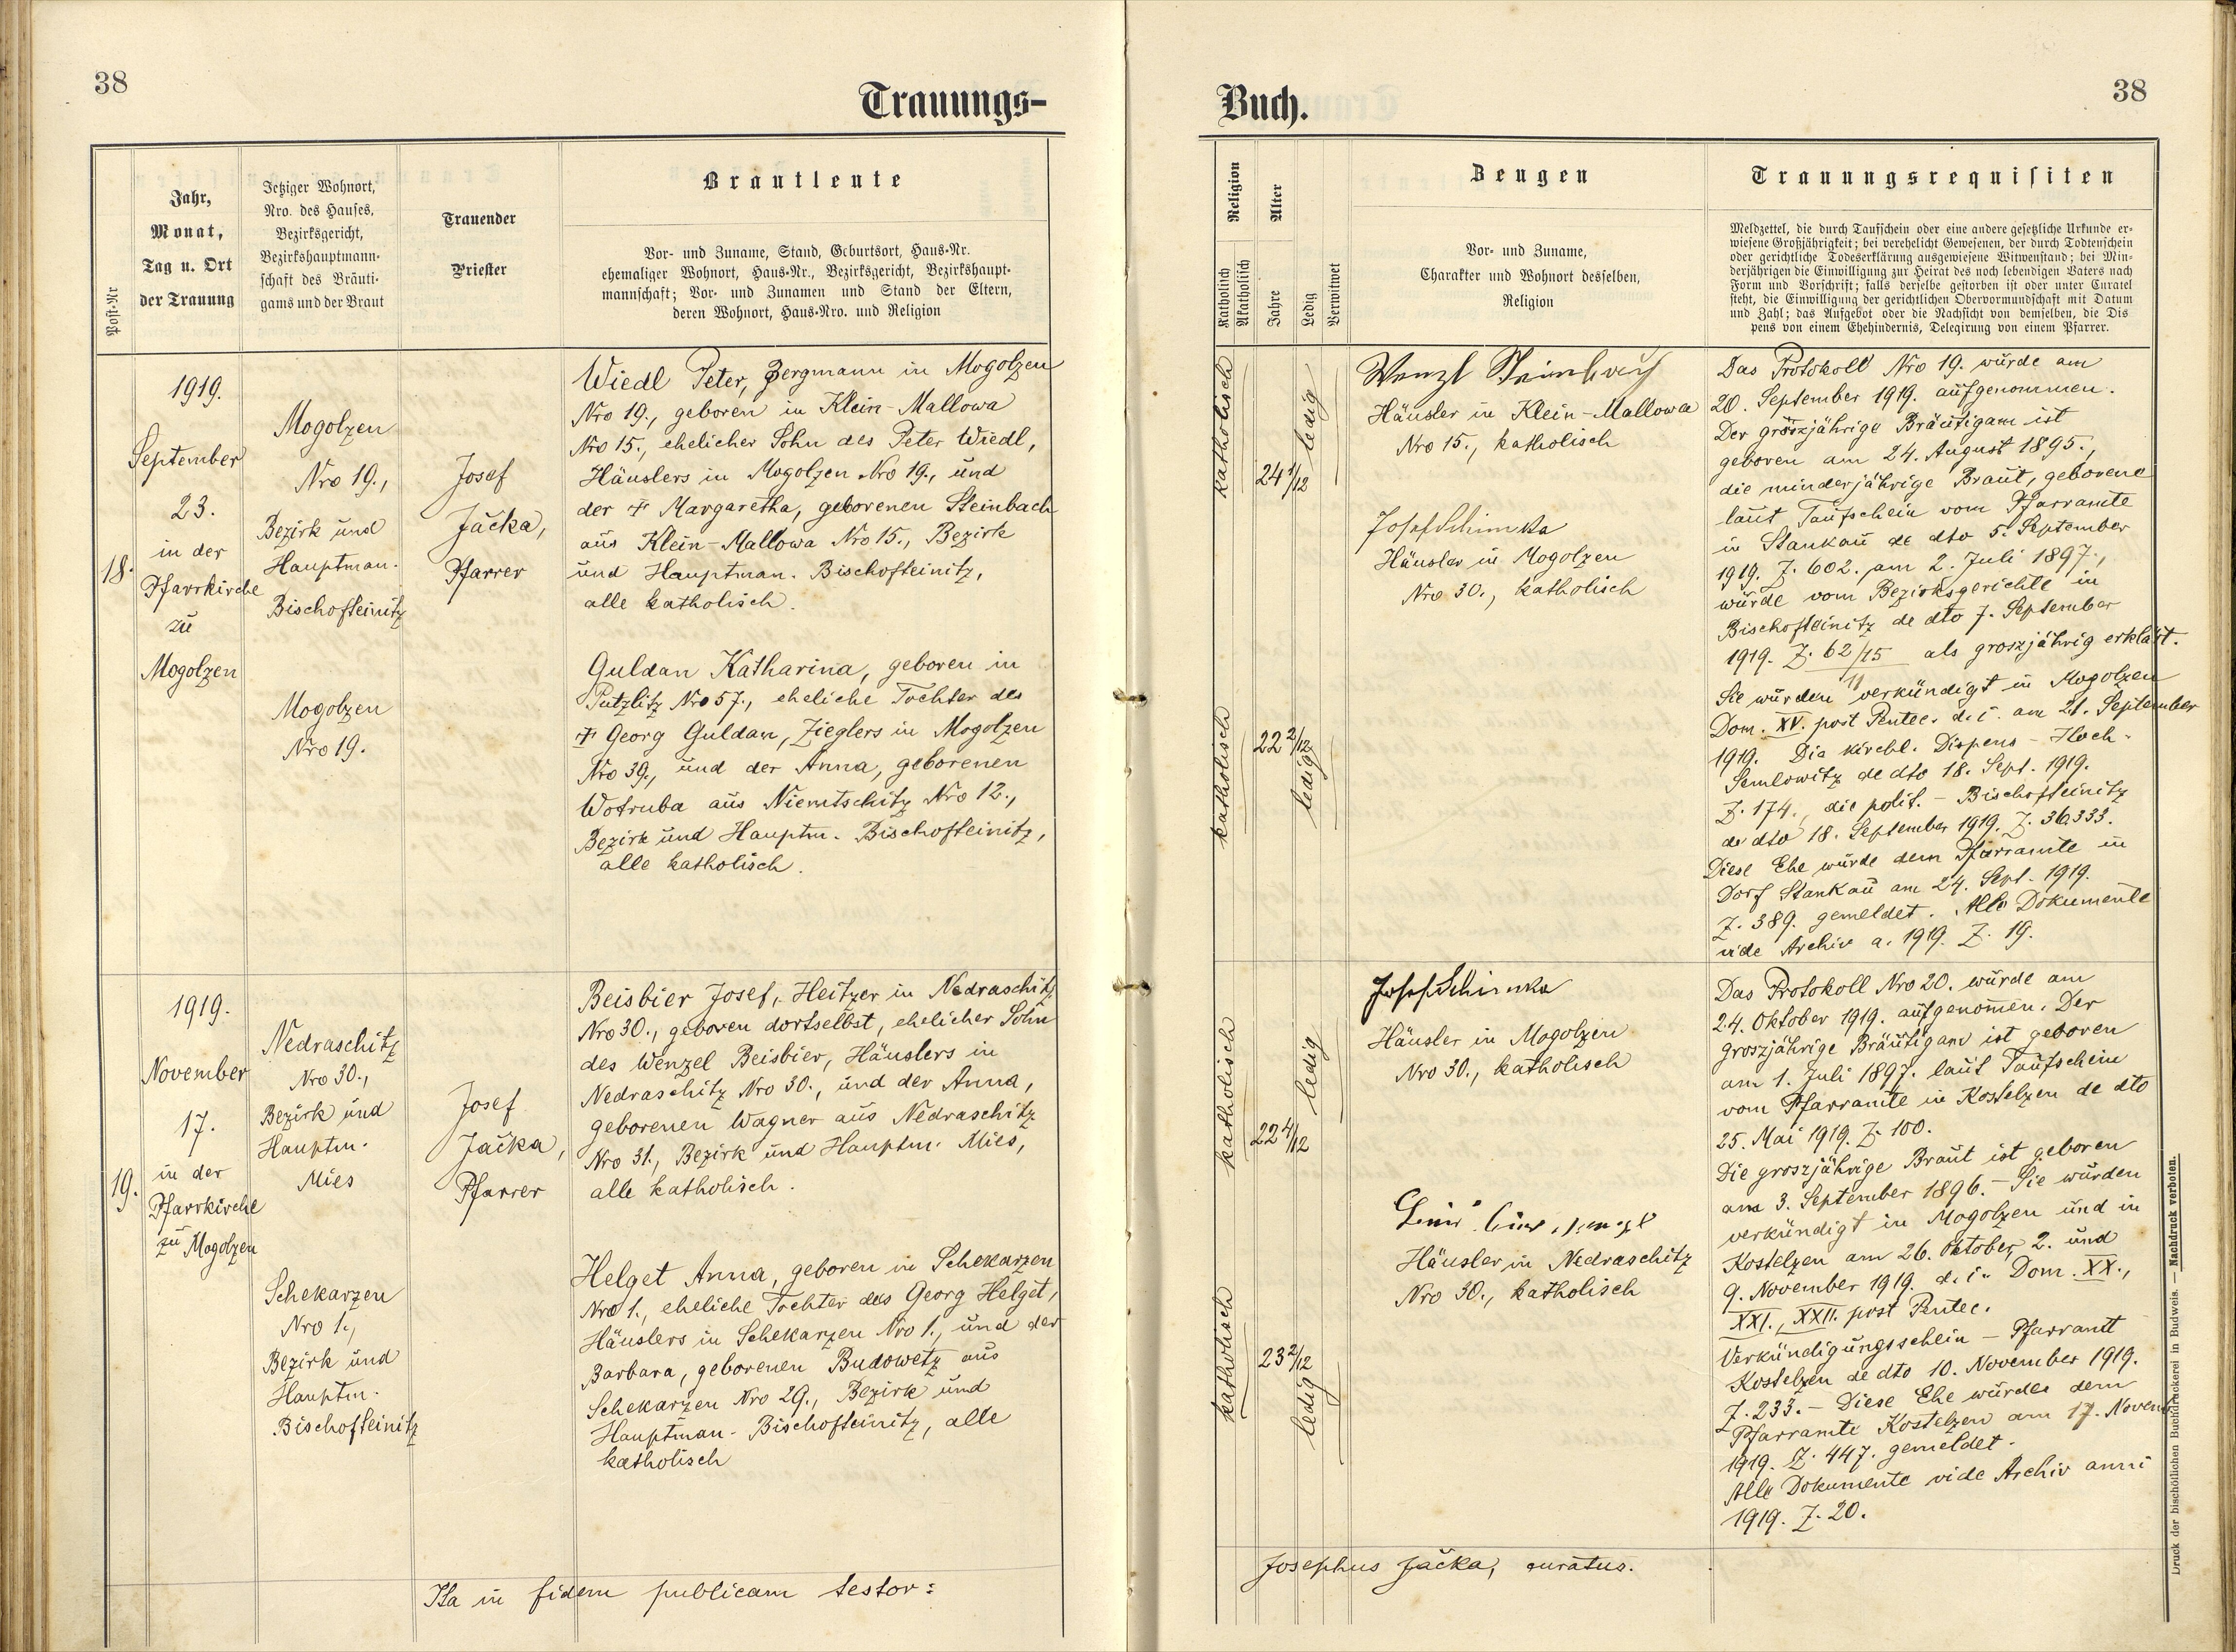 38
Trauungs-
Post-Nr
Jahr,
Monat,
Tag u. Ort
der Trauung
Jetziger Wohnort,
Nro. des Hauses,
Bezirksgericht,
Bezirkshauptmann-
schaft des Bräuti-
gams und der Braut
Trauender
Priester
Brautleute
Vor- und Zuname, Stand, Geburtsort, Haus-Nr.
ehemaliger Wohnort, Haus-Nr., Bezirksgericht, Bezirkshaupt-
mannschaft; Vor- und Zunamen und Stand der Eltern,
deren Wohnort, Haus-Nro. und Religion
18.
1919.
September
23.
in der
Pfarrkirche
zu
Mogolzen
Mogolzen
Nro 19.,
Bezirk und
Hauptman.
Bischofteinitz
Mogolzen
Nro 19.
Josef
Jačka,
Pfarrer
Wiedl Peter, Bergmann in Mogolzen
Nro 19., geboren in Klein-Mallowa
Nro 15., ehelicher Sohn des Peter Wiedl,
Häuslers in Mogolzen Nro 19., und
der † Margaretha, geborenen Steinbach
aus Klein-Mallowa Nro 15., Bezirk
und Hauptman. Bischofteinitz,
alle katholisch.
Guldan Katharina, geboren in
Putzlitz Nro 57., eheliche Tochter des
† Georg Guldan, Zieglers in Mogolzen
Nro 39., und der Anna, geborenen
Wotruba aus Niemtschitz Nro 12.,
Bezirk und Hauptm. Bischofteinitz,
alle katholisch.
19.
1919.
November
17.
in der
Pfarrkirche
zu Mogolzen
Nedraschitz
Nro 30.,
Bezirk und
Hauptm.
Mies
Schekarzen
Nro 1.,
Bezirk und
Hauptm.
Bischofteinitz
Josef
Jačka,
Pfarrer
Beisbier Josef, Heitzer in Nedraschitz
Nro 30., geboren dortselbst, ehelicher Sohn
des Wenzel Beisbier, Häuslers in
Nedraschitz Nro 30., und der Anna,
geborenen Wagner aus Nedraschitz
Nro 31., Bezirk und Hauptm. Mies,
alle katholisch.
Helget Anna, geboren in Schekarzen
Nro 1., eheliche Tochter des Georg Helget,
Häuslers in Schekarzen Nro 1., und der
Barbara, geborenen Budowetz aus
Schekarzen Nro 29., Bezirk und
Hauptman. Bischofteinitz, alle
katholisch
Ita in fidem publicam testor:
Buch.
38
Religion
Katholisch
Akatholisch
Alter
Jahre
Ledig
Verwitwet
Zeugen
Vor- und Zuname,
Charakter und Wohnort desselben,
Religion
Trauungsrequisiten
Meldzettel, die durch Taufschein oder eine andere gesetzliche Urkunde er-
wiesene Großjährigkeit; bei verehelicht Gewesenen, der durch Todtenschein
oder gerichtliche Todeserklärung ausgewiesene Witwenstand; bei Min-
derjährigen die Einwilligung zur Heirat des noch lebendigen Vaters nach
Form und Vorschrift; falls derselbe gestorben ist oder unter Curatel
steht, die Einwilligung der gerichtlichen Obervormundschaft mit Datum
und Zahl; das Aufgebot oder die Nachsicht von demselben, die Dis
pens von einem Ehehindernis, Delegirung von einem Pfarrer.
katholisch
24 1/12
ledig
katholisch
22 2/12
ledig
Wenzl Steinbach
Häusler in Klein-Mallowa
Nro 15., katholisch
Josef Schimka
Häusler in Mogolzen
Nro 30., katholisch
Das Protokoll Nro 19. wurde am
20. September 1919. aufgenommen.
Der groszjährige Bräutigam ist
geboren am 24. August 1895.,
die minderjährige Braut, geborene
laut Taufschein vom Pfarramte
in Stankau de dto 5. September
1919. Z. 602. am 2. Juli 1897.,
wurde vom Bezirksgerichte in
Bischofteinitz de dto 7. September
1919. Z. 62/15 als groszjährig erklärt.
11
Sie wurden verkündigt in Mogolzen
Dom. XV. post Pentec. d. i. am 21. September
1919. Die kirchl. Dispens - Hoch-
Semlowitz de dto 18. Sept. 1919.
Z. 174., die polit. - Bischofteinitz
de dto 18. September 1919. Z. 36.333.
Diese Ehe wurde dem Pfarramte in
Dorf Stankau am 24. Sept. 1919.
Z. 389. gemeldet. Alle Dokumente
vide Archiv a. 1919. Z. 19.
katholisch
22 4/12
ledig
katholisch
23 2/12
ledig
Josef Schimka
Häusler in Mogolzen
Nro 30., katholisch
Häusler in Nedraschitz
Nro 30., katholisch
Das Protokoll Nro 20. wurde am
24. Oktober 1919. aufgenom̄en. Der
groszjährige Bräutigam ist geboren
am 1. Juli 1897. laut Taufschein
vom Pfarramte in Kostelzen de dto
25. Mai 1919. Z. 100.
Die groszjährige Braut ist geboren
am 3. September 1896. - Sie wurden
verkündigt in Mogolzen und in
Kostelzen am 26. Oktober, 2. und
9. November 1919. d. i. Dom. XX.,
XXI., XXII. post Pentec.
Verkündigungsschein - Pfarramt
Kostelzen de dto 10. November 1919.
Z. 233. - Diese Ehe wurde dem
Pfarramte Kostelzen am 17. Novem
1919. Z. 447. gemeldet.
Alle Dokumente vide Archiv anni
1919. Z. 20.
Josephus Jačka, curatus.
Druck der bischöflichen Buchdruckerei in Budweis. — Nachdruck verboten.